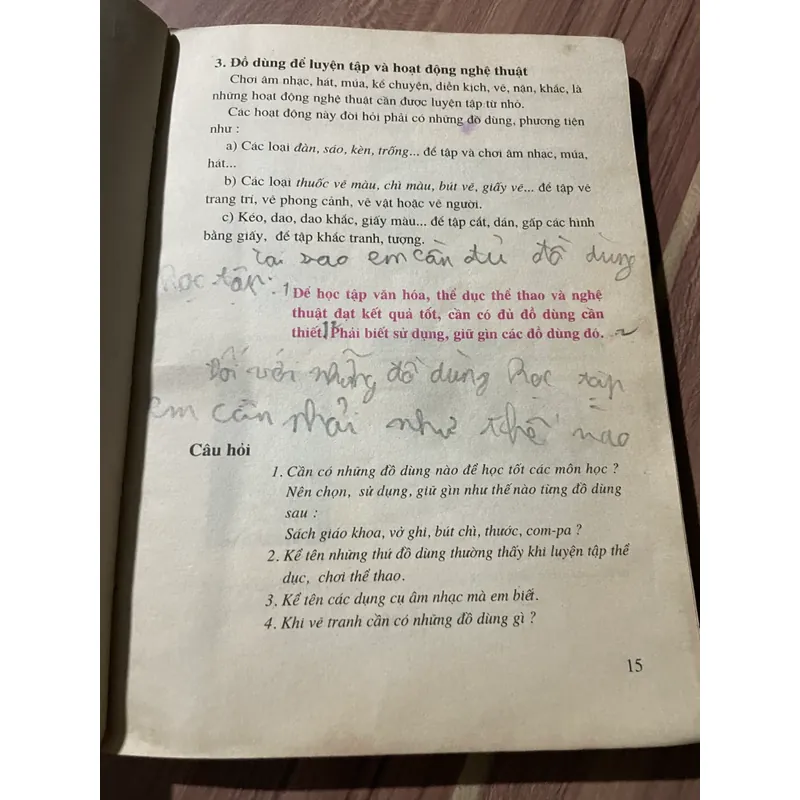 3. Đồ dùng để luyện tập và hoạt động nghệ thuật
Chơi âm nhạc, hát, múa, kể chuyện, diễn kịch, vẽ, nặn, khắc, là
những hoạt động nghệ thuật cần được luyện tập từ nhỏ.
Các hoạt động này đòi hỏi phải có những đồ dùng, phương tiện
như :
a) Các loại đàn, sáo, kèn, trống... để tập và chơi âm nhạc, múa,
hát...
b) Các loại thuốc vẽ màu, chì màu, bút vẽ, giấy vẽ... để tập vẽ
trang trí, vẽ phong cảnh, vẽ vật hoặc vẽ người.
c) Kéo, dao, dao khắc, giấy màu... để tập cắt, dán, gấp các hình
bằng giấy, để tập khắc tranh, tượng.
tại sao em cần đủ đồ dùng
học tập:
1 Để học tập văn hóa, thể dục thể thao và nghệ
thuật đạt kết quả tốt, cần có đủ đồ dùng cần
thiết. Phải biết sử dụng, giữ gìn các đồ dùng đó. 2
Đối với những đồ dùng học tập
em cần phải như thế nào
Câu hỏi
1. Cần có những đồ dùng nào để học tốt các môn học ?
Nên chọn, sử dụng, giữ gìn như thế nào từng đồ dùng
sau :
Sách giáo khoa, vở ghi, bút chì, thước, com-pa ?
2. Kể tên những thứ đồ dùng thường thấy khi luyện tập thể
dục, chơi thể thao.
3. Kể tên các dụng cụ âm nhạc mà em biết.
4. Khi vẽ tranh cần có những đồ dùng gì ?
15